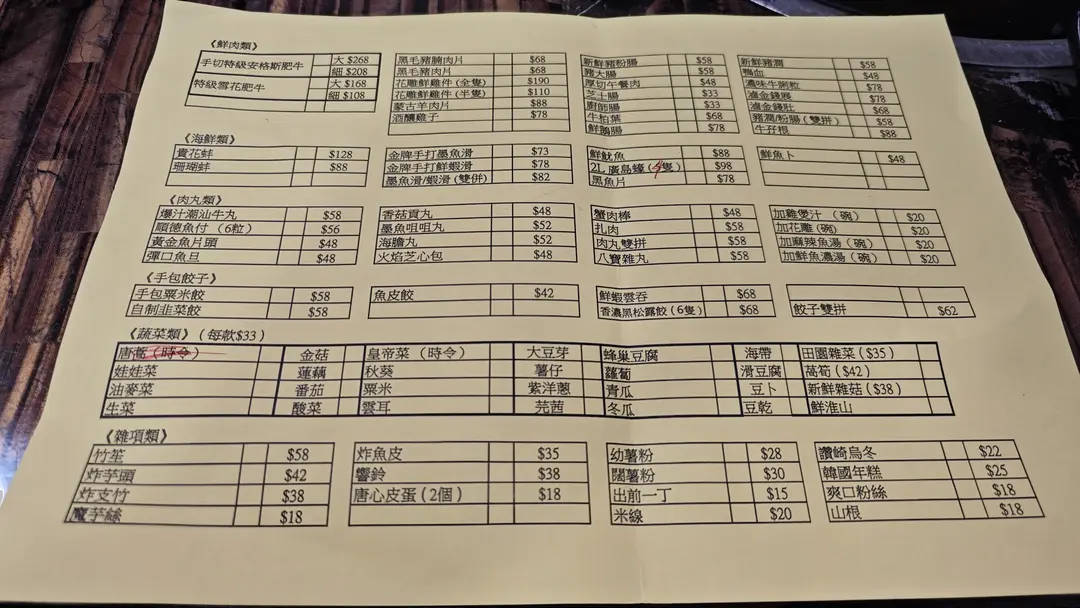 《鮮肉類》
手切特級安格斯肥牛 大 $268
細 $208
特級雪花肥牛 大 $168
細 $108
黑毛豬腩肉片 $68
黑毛豬肉片 $68
花雕鮮雞件 (全隻) $190
花雕鮮雞件 (半隻) $110
蒙古羊肉片 $88
酒釀雞子 $78
新鮮豬粉腸 $58
豬大腸 $58
厚切午餐肉 $48
芝士腸 $33
廚師腸 $33
牛柏葉 $68
鮮鵝腸 $78
新鮮豬潤 $58
鴨血 $48
濃味牛脷粒 $78
滷金錢𦟌 $78
滷金錢肚 $68
豬潤/粉腸 (雙拼) $58
牛孖根 $88
《海鮮類》
貴花蚌 $128
珊瑚蚌 $88
金牌手打墨魚滑 $73
金牌手打鮮蝦滑 $78
墨魚滑/蝦滑 (雙併) $82
鮮魷魚 $88
2L 廣島蠔 (隻) $98
黑魚片 $78
鮮魚卜 $48
《肉丸類》
爆汁潮汕牛丸 $58
順德魚付 (6粒) $56
黃金魚片頭 $48
彈口魚旦 $48
香菇貢丸 $48
墨魚咀咀丸 $52
海膽丸 $52
火焰芝心包 $48
蟹肉棒 $48
扎肉 $58
肉丸雙拼 $58
八寶雜丸 $58
加雞煲汁 (碗) $20
加花雕 (碗) $20
加麻辣魚湯 (碗) $20
加鮮魚濃湯 (碗) $20
《手包餃子》
手包粟米餃 $58
自制韭菜餃 $58
魚皮餃 $42
鮮蝦雲吞 $68
香濃黑松露餃 (6隻) $68
餃子雙拼 $62
《蔬菜類》 (每款$33)
唐蒿 (時令) 金菇 皇帝菜 (時令) 大豆芽 蜂巢豆腐 海帶 田園雜菜 ($35)
娃娃菜 蓮藕 秋葵 薯仔 蘿蔔 滑豆腐 萵筍 ($42)
油麥菜 番茄 粟米 紫洋蔥 青瓜 豆卜 新鮮雜菇 ($38)
生菜 酸菜 雲耳 芫茜 冬瓜 豆乾 鮮淮山
《雜項類》
竹笙 $58
炸芋頭 $42
炸支竹 $38
魔芋絲 $18
炸魚皮 $35
響鈴 $38
唐心皮蛋 (2個) $18
幼薯粉 $28
闊薯粉 $30
出前一丁 $15
米線 $20
讚崎烏冬 $22
韓國年糕 $25
爽口粉絲 $18
山根 $18